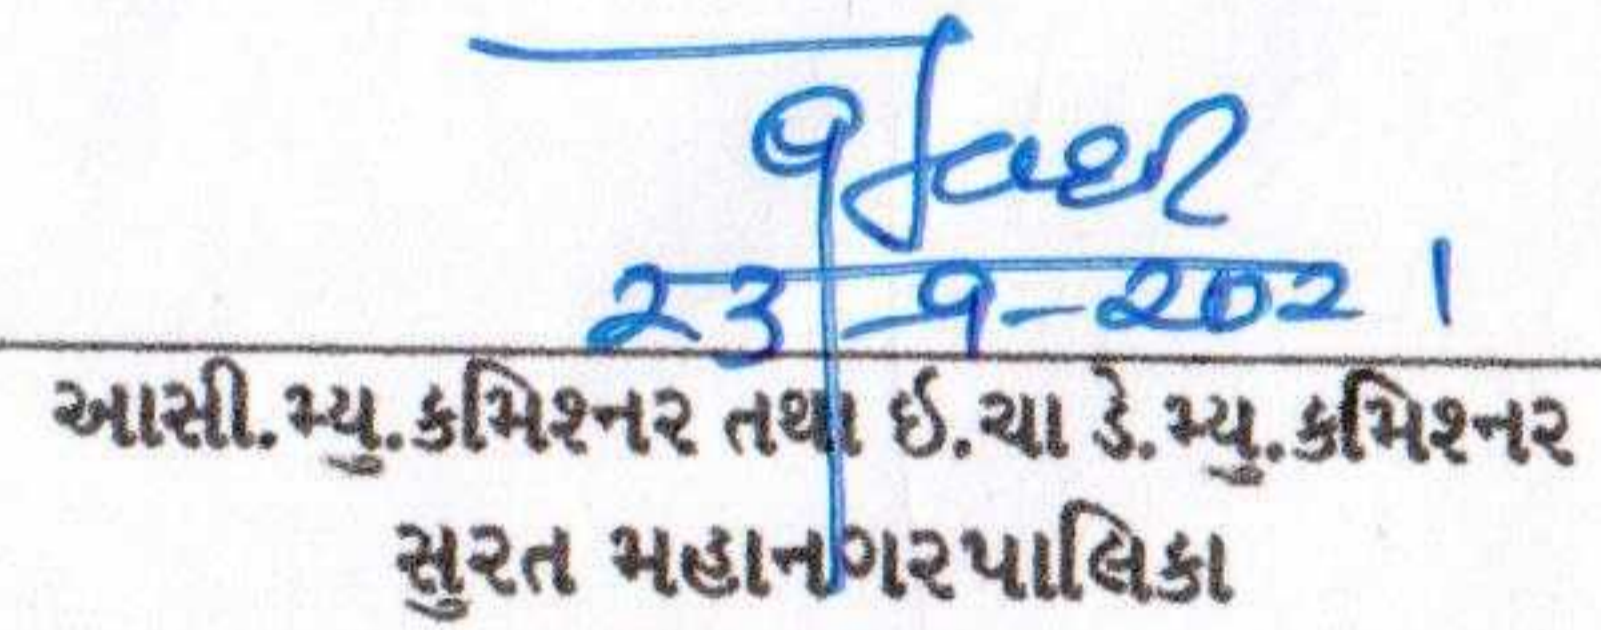 23-9-2021
આસી.મ્યુ.કમિશ્નર તથા ઈ.ચા ડે.મ્યુ.કમિશ્નર
સુરત મહાનગરપાલિકા